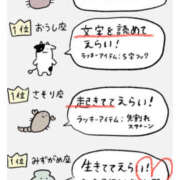 1位 おうし座
文字を読めて
えらい!
ラッキーアイテム:S字フック
1位 さそり座
起きててえらい!
ラッキーアイテム:先割れ
スプーン
1位 みずがめ座
生きててえらい!